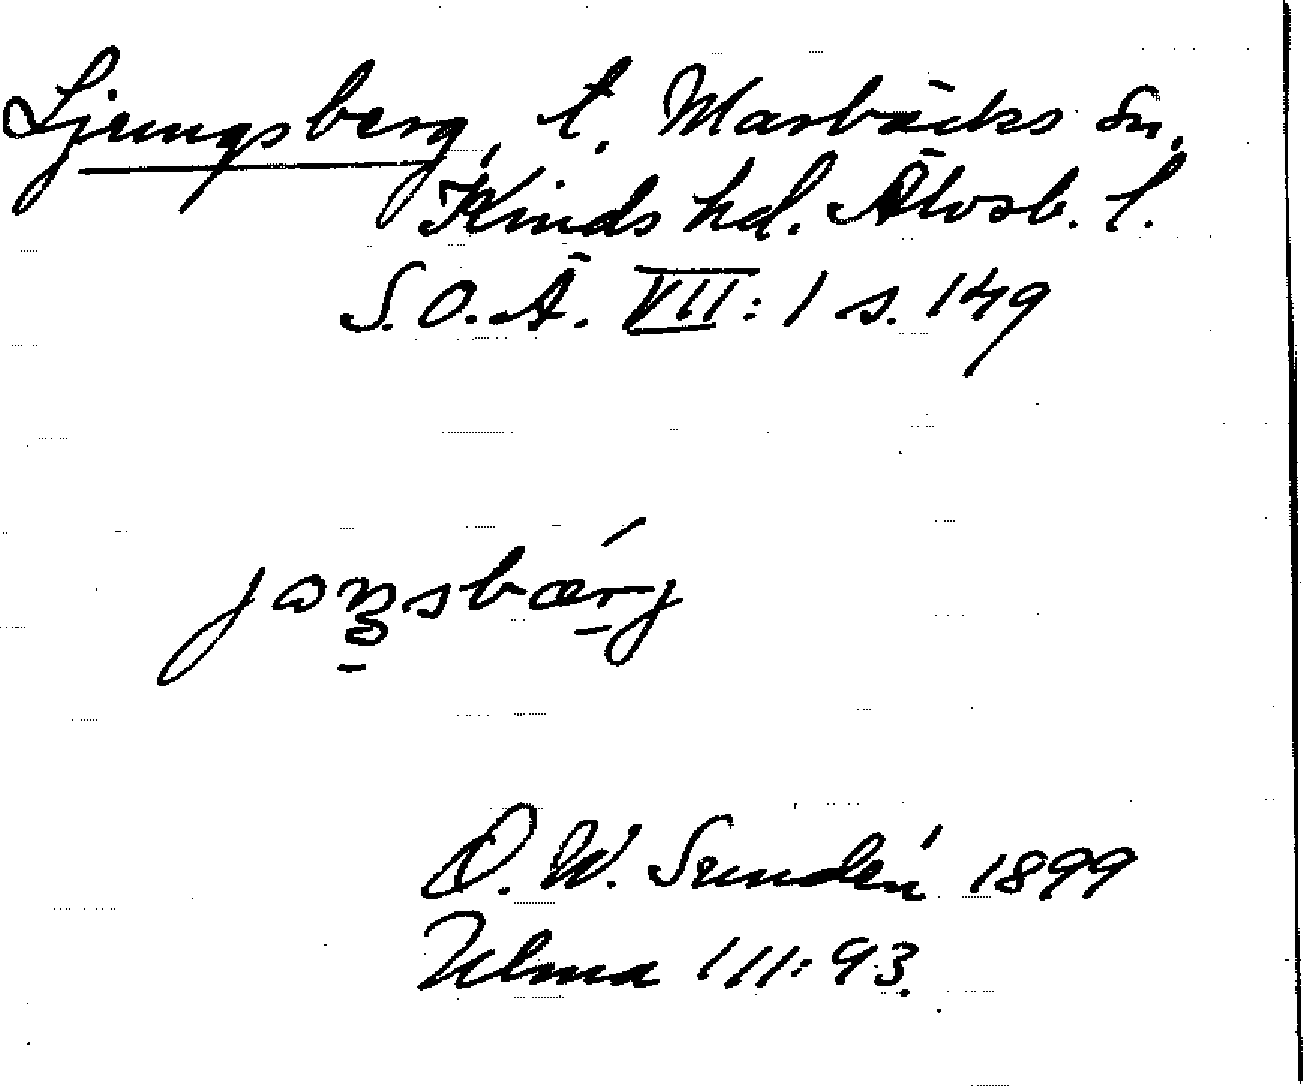 Ljungsberg, t. Marbäcks sn,
Kinds hd. Älvsb. l.
S.O.Ä. VII: 1 s. 149
D. W. Sundén 1899
Ulma 111: 93.